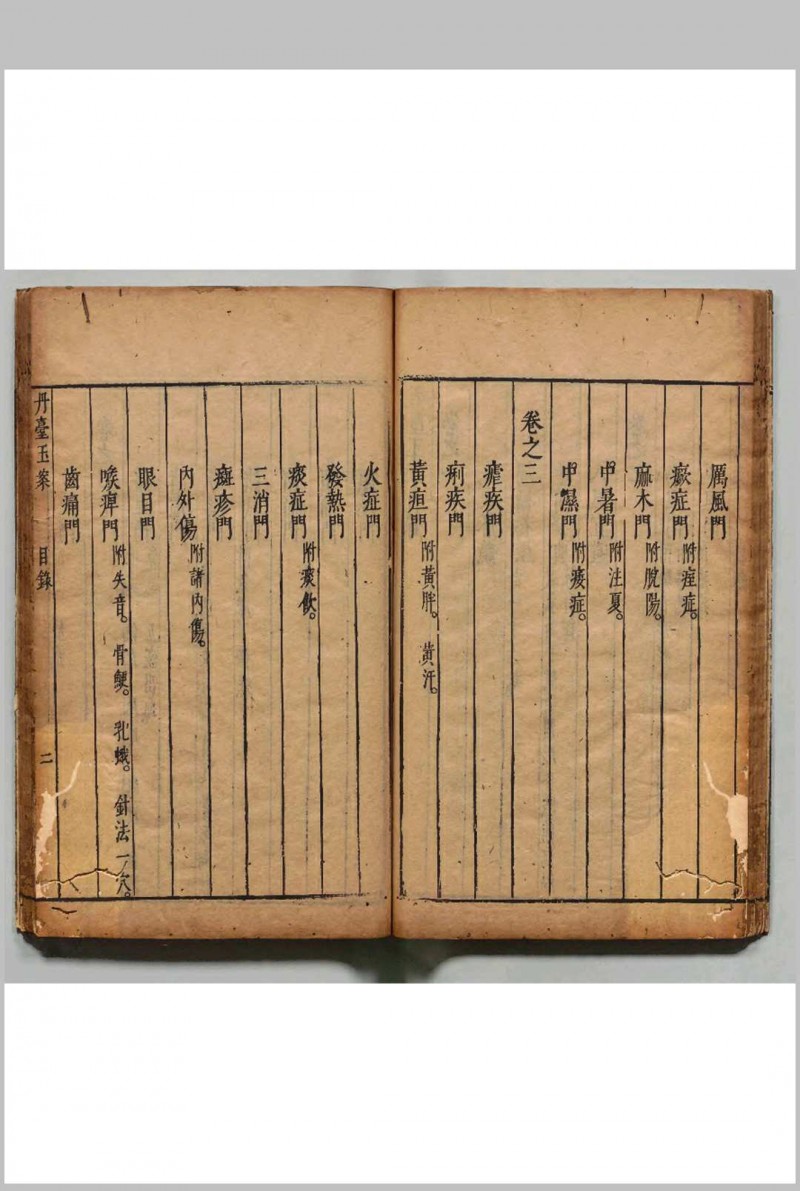 厲風門
厥症門 附痓症。
麻木門 附脫陽。
中暑門 附注夏。
中濕門 附痿症。
卷之三
瘧疾門
痢疾門
黃疸門 附黃胖。 黃汗。
火症門
發熱門
痰症門 附痰飲。
三消門
斑疹門
內外傷 附諸內傷。
眼目門
喉痺門 附失音。 骨鯁。 乳蛾。 針法一穴。
齒痛門
丹臺玉案 目錄 二